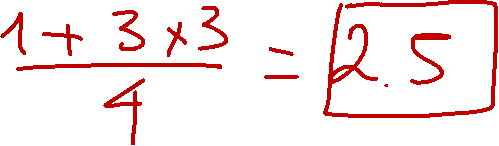 1 + 3 x 3
4
= 2.5